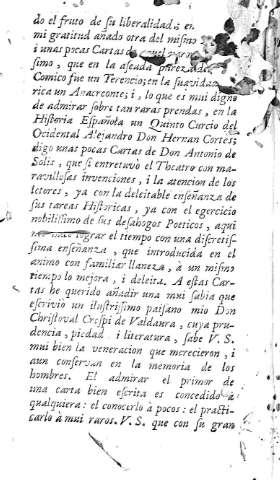 do el fruto de su liberalidad; en
mi gratitud añado otra del mismo
i unas pocas Cartas
simo, que en la aseada pureza
Comico fue un Terencio; en la suavidad
rica un Anacreonte; i, lo que es mui digno
de admirar sobre tan raras prendas, en la
Historia Española un Quinto Curcio del
Ocidental Alejandro Don Hernan Cortes;
digo unas pocas Cartas de Don Antonio de
Solis, que si entretuvo el Theatro con ma-
ravillosas invenciones, i la atencion de los
letores, ya con la deleitable enseñanza de
sus tareas Historicas, ya con el egercicio
nobilissimo de sus desahogos Poeticos, aqui
hace lograr el tiempo con una discretis-
sima enseñanza, que introducida en el
animo con familiar llaneza, à un mismo
tiempo lo mejora, i deleita. A estas Car-
tas he querido añadir una mui sabia que
escrivio un ilustrissimo paisano mio Don
Christoval Crespi de Valdaura, cuya pru-
dencia, piedad i literatura, sabe V. S.
mui bien la veneracion que merecieron, i
aun conservan en la memoria de los
hombres. El admirar el primor de
una carta bien escrita es concedido à
qualquiera: el conocerlo à pocos: el practi-
carlo à mui raros. V. S. que con su gran